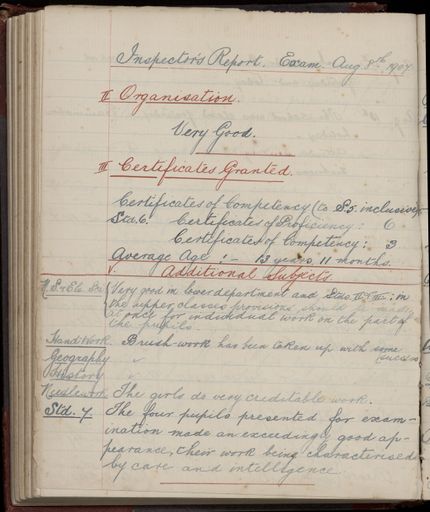 Inspector's Report. Exam. Aug. 8th, 1907.
II Organisation.
Very Good.
III Certificates Granted.
Certificates of Competency (to S.5. inclusive)
Std. 6. Certificates of Proficiency: 6
Certificates of Competency: 3
Average Age: — 13 years 11 months.
Additional Subjects
Very good in lower department and Stds. II & III: in
the upper classes provisions should be made
at once for individual work on the part of
the pupils.
Handiwork Brush-work has been taken up with some success
Geography "
History "
Needlework The girls do very creditable work.
Std. 7 The four pupils presented for exam-
ination made an exceedingly good ap-
pearance, their work being characterised
by care and intelligence.